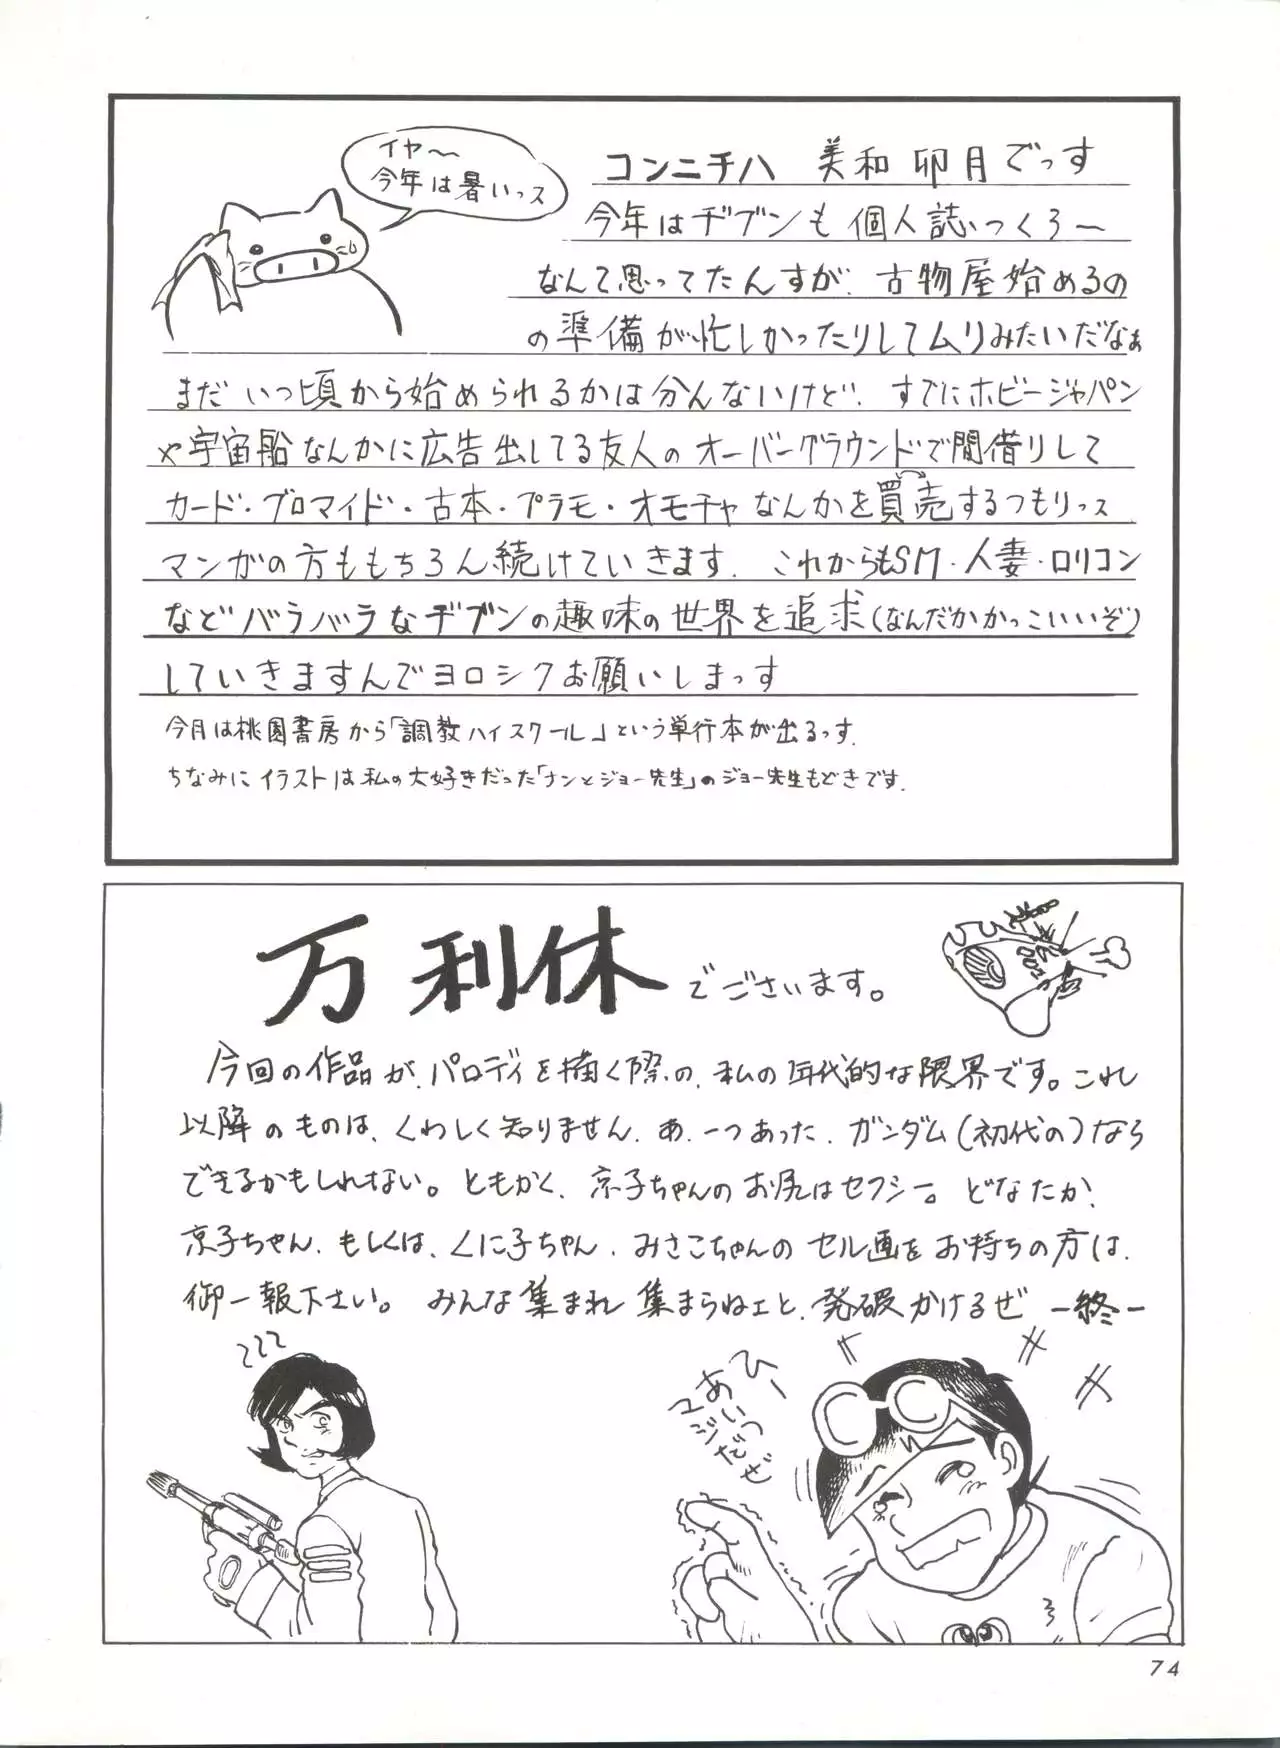 イヤ〜
今年は暑いっス
コンニチハ 美和 卯月でっす
今年はヂブンも個人誌つくろ〜
なんて思ってたんすが、古物屋始めるの
の準備が忙しかったりしてムリみたいだなぁ
まだいつ頃から始められるかは分んないけど、すでにホビージャパン
や宇宙船なんかに広告出してる友人のオーバーグラウンドで間借りして
カード・ブロマイド・古本・プラモ・オモチャなんかを買売するつもりっス
マンガの方ももちろん続けていきます。これからもSM・人妻・ロリコン
などバラバラなヂブンの趣味の世界を追求(なんだかかっこいいぞ)
していきますんでヨロシクお願いしまっす
今月は桃園書房から「調教ハイスクール」という単行本が出るっす。
ちなみにイラストは私の大好きだった「ナンとジョー先生」のジョー先生もどきです。
万利休でございます。
今回の作品が、パロディを描く際の、私の年代的な限界です。これ
以降のものは、くわしく知りません。あ、一つあった、ガンダム(初代の)なら
できるかもしれない。ともかく、京子ちゃんのお尻はセクシー。どなたか、
京子ちゃん、もしくは、くに子ちゃん、みさこちゃんのセル画をお持ちの方は、
御一報下さい。みんな集まれ 集まらねェと、発破かけるぜ ー終ー
ひー
あいつ
マジだぜ
74